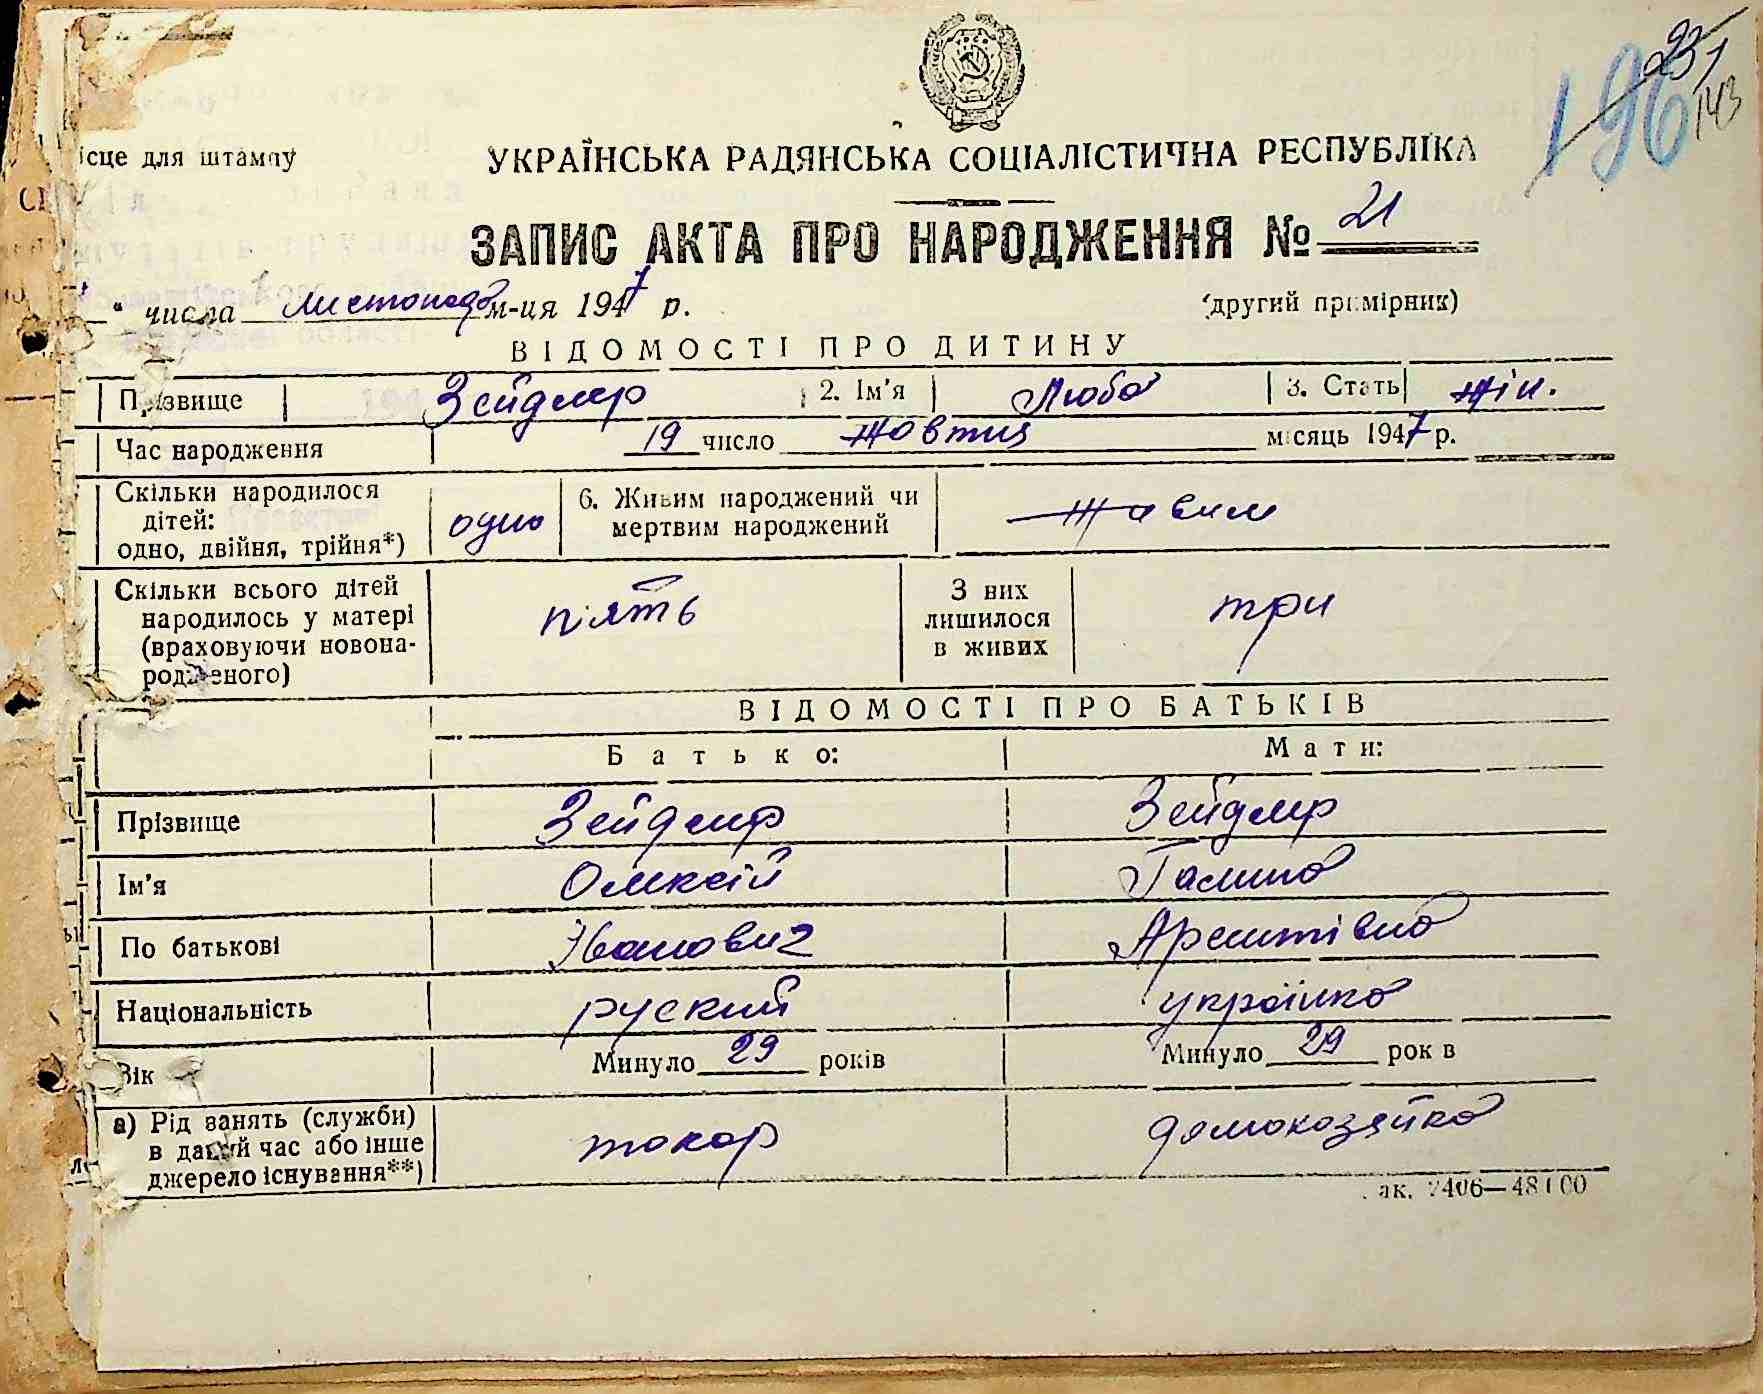 196
231
143
ісце для штампу
УКРАЇНСЬКА РАДЯНСЬКА СОЦІАЛІСТИЧНА РЕСПУБЛІКА
ЗАПИС АКТА ПРО НАРОДЖЕННЯ № 21
" числа листопада м-ця 1947 р. (другий примірник)
ВІДОМОСТІ ПРО ДИТИНУ
Прізвище Зейдлер 2. Ім'я Люба 3. Стать жін.
Час народження 19 число жовтня місяць 1947 р.
Скільки народилося дітей: одно, двійня, трійня*) одно 6. Живим народжений чи мертвим народжений живим
Скільки всього дітей народилось у матері (враховуючи новонародженого) п'ять З них лишилося в живих три
ВІДОМОСТІ ПРО БАТЬКІВ
Батько: Мати:
Прізвище Зейдлер Зейдлер
Ім'я Олексій Галина
По батькові Іванович
Національність руский українка
Вік Минуло 29 років Минуло 29 років
а) Рід занять (служби) в даний час або інше джерело існування**) токар домохозяйка
ак. 2406—48100